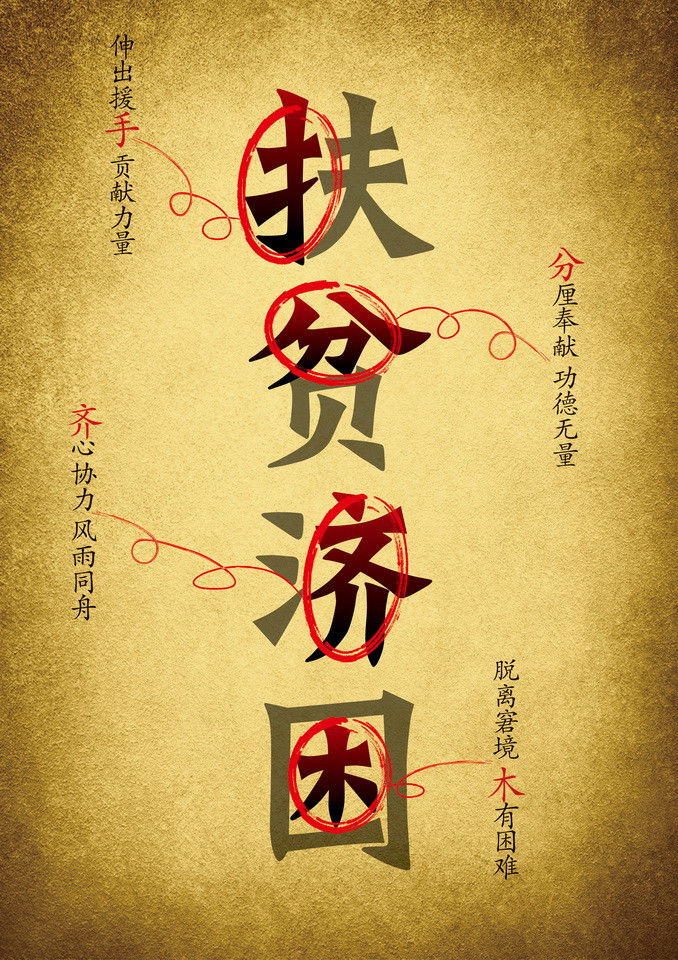 扶贫济困
伸出援手 贡献力量
分厘奉献 功德无量
齐心协力 风雨同舟
脱离窘境 木有困难